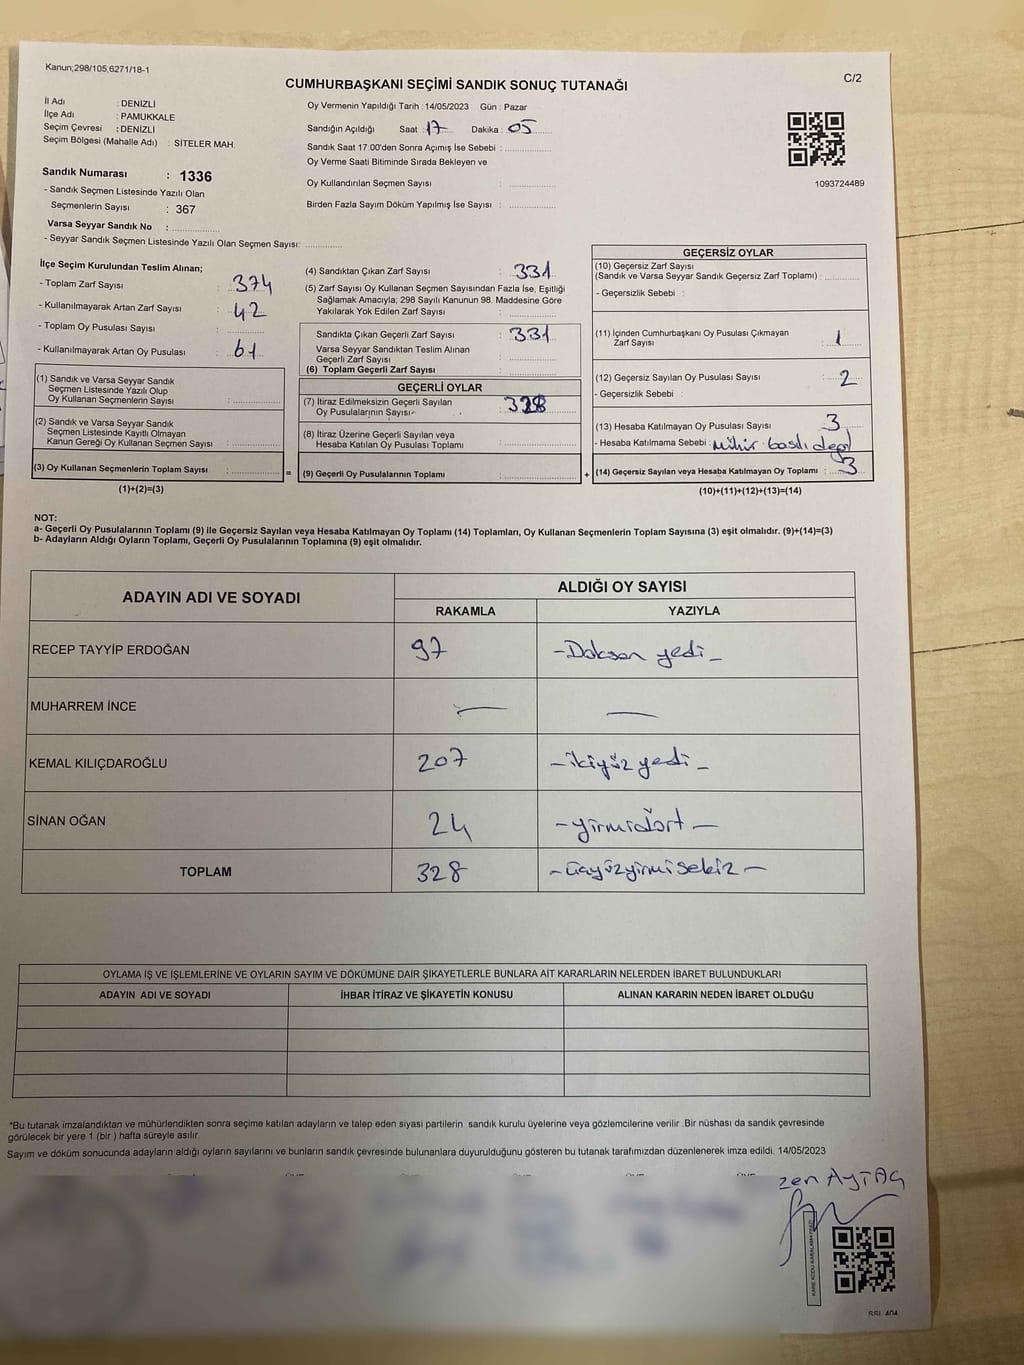 Kanun;298/105,6271/18-1
C/2
CUMHURBAŞKANI SEÇİMİ SANDIK SONUÇ TUTANAĞI
İl Adı : DENİZLİ
İlçe Adı : PAMUKKALE
Seçim Çevresi : DENİZLİ
Seçim Bölgesi (Mahalle Adı) : SİTELER MAH.
Sandık Numarası : 1336
- Sandık Seçmen Listesinde Yazılı Olan
Seçmenlerin Sayısı : 367
Varsa Seyyar Sandık No :
- Seyyar Sandık Seçmen Listesinde Yazılı Olan Seçmen Sayısı:
Oy Vermenin Yapıldığı Tarih : 14/05/2023 Gün : Pazar
Sandığın Açıldığı Saat : 17 Dakika : 05
Sandık Saat 17:00'den Sonra Açımış İse Sebebi :
Oy Verme Saati Bitiminde Sırada Bekleyen ve
Oy Kullandırılan Seçmen Sayısı :
Birden Fazla Sayım Döküm Yapılmış İse Sayısı :
1093724489
İlçe Seçim Kurulundan Teslim Alınan;
- Toplam Zarf Sayısı : 374
- Kullanılmayarak Artan Zarf Sayısı : 42
- Toplam Oy Pusulası Sayısı :
- Kullanılmayarak Artan Oy Pusulası : 61
(1) Sandık ve Varsa Seyyar Sandık
Seçmen Listesinde Yazılı Olup
Oy Kullanan Seçmenlerin Sayısı :
(2) Sandık ve Varsa Seyyar Sandık
Seçmen Listesinde Kayıtlı Olmayan
Kanun Gereği Oy Kullanan Seçmen Sayısı :
(3) Oy Kullanan Seçmenlerin Toplam Sayısı :
(1)+(2)=(3)
=
(4) Sandıktan Çıkan Zarf Sayısı : 331
(5) Zarf Sayısı Oy Kullanan Seçmen Sayısından Fazla İse, Eşitliği
Sağlamak Amacıyla; 298 Sayılı Kanunun 98. Maddesine Göre
Yakılarak Yok Edilen Zarf Sayısı :
Sandıkta Çıkan Geçerli Zarf Sayısı : 331
Varsa Seyyar Sandıktan Teslim Alınan
Geçerli Zarf Sayısı :
(6) Toplam Geçerli Zarf Sayısı :
GEÇERLİ OYLAR
(7) İtiraz Edilmeksizin Geçerli Sayılan
Oy Pusulalarının Sayısı : 328
(8) İtiraz Üzerine Geçerli Sayılan veya
Hesaba Katılan Oy Pusulası Toplamı :
(9) Geçerli Oy Pusulalarının Toplamı :
+
GEÇERSİZ OYLAR
(10) Geçersiz Zarf Sayısı
(Sandık ve Varsa Seyyar Sandık Geçersiz Zarf Toplamı) :
- Geçersizlik Sebebi :
(11) İçinden Cumhurbaşkanı Oy Pusulası Çıkmayan
Zarf Sayısı : 1
(12) Geçersiz Sayılan Oy Pusulası Sayısı : 2
- Geçersizlik Sebebi :
(13) Hesaba Katılmayan Oy Pusulası Sayısı : 3
- Hesaba Katılmama Sebebi : Mühür basılı değil
(14) Geçersiz Sayılan veya Hesaba Katılmayan Oy Toplamı : 3
(10)+(11)+(12)+(13)=(14)
NOT:
a- Geçerli Oy Pusulalarının Toplamı (9) ile Geçersiz Sayılan veya Hesaba Katılmayan Oy Toplamı (14) Toplamları, Oy Kullanan Seçmenlerin Toplam Sayısına (3) eşit olmalıdır. (9)+(14)=(3)
b- Adayların Aldığı Oyların Toplamı, Geçerli Oy Pusulalarının Toplamına (9) eşit olmalıdır.
ADAYIN ADI VE SOYADI
ALDIĞI OY SAYISI
RAKAMLA YAZIYLA
RECEP TAYYİP ERDOĞAN 97 -Doksan yedi-
MUHARREM İNCE — —
KEMAL KILIÇDAROĞLU 207 -ikiyüz yedi-
SİNAN OĞAN 24 -yirmidört-
TOPLAM 328 -üçyüzyirmisekiz-
OYLAMA İŞ VE İŞLEMLERİNE VE OYLARIN SAYIM VE DÖKÜMÜNE DAİR ŞİKAYETLERLE BUNLARA AİT KARARLARIN NELERDEN İBARET BULUNDUKLARI
ADAYIN ADI VE SOYADI İHBAR İTİRAZ VE ŞİKAYETİN KONUSU ALINAN KARARIN NEDEN İBARET OLDUĞU
*Bu tutanak imzalandıktan ve mühürlendikten sonra seçime katılan adayların ve talep eden siyasi partilerin sandık kurulu üyelerine veya gözlemcilerine verilir .Bir nüshası da sandık çevresinde
görülecek bir yere 1 (bir ) hafta süreyle asılır.
Sayım ve döküm sonucunda adayların aldığı oyların sayılarını ve bunların sandık çevresinde bulunanlara duyurulduğunu gösteren bu tutanak tarafımızdan düzenlenerek imza edildi. 14/05/2023
zen AYTAÇ